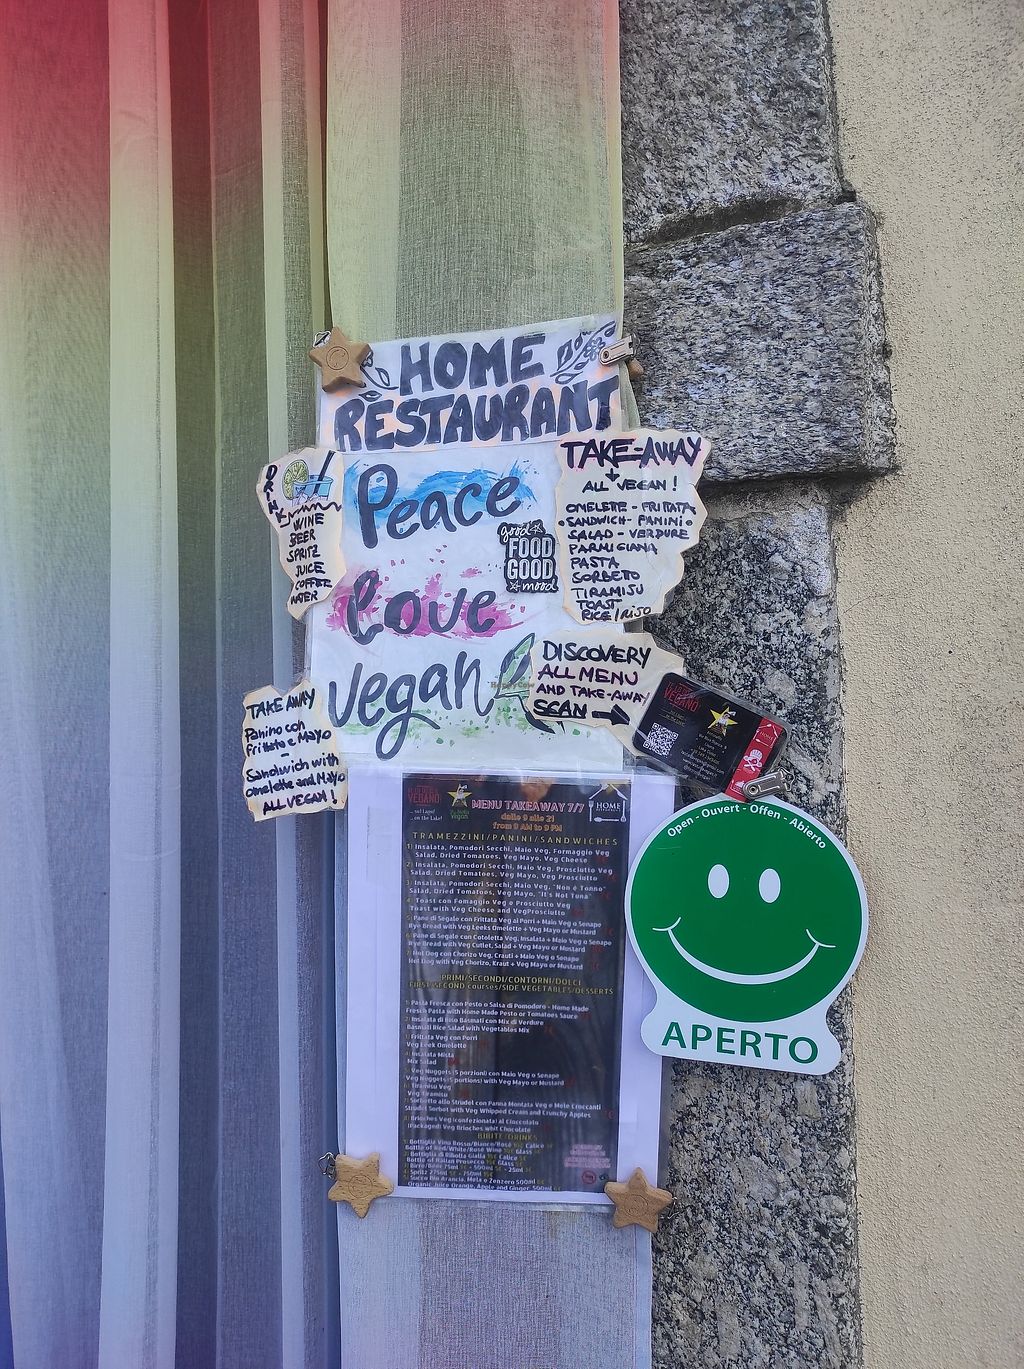 HOME
RESTAURANT
Peace
Love
Vegan
good
FOOD
GOOD
mood
DRINK
WINE
BEER
SPRITZ
JUICE
COFFEE
WATER
TAKE-AWAY
ALL VEGAN!
OMELETE - FRITTATA
SANDWICH - PANINI
SALAD - VERDURE
PARMIGIANA
PASTA
SORBETO
TIRAMISU
TOAST
RICE/RISO
DISCOVERY
ALL MENU
AND TAKE-AWAY
SCAN
TAKE AWAY
Panino con
frittata e Mayo
Sandwich with
omelette and Mayo
ALL VEGAN!
VEGANO
VEGANO
... on the Lake!
MENU TAKEAWAY 7/7
HOME
dalle 9 alle 21
from 9 AM to 9 PM
TRAMEZZINI/PANINI/SANDWICHES
1) Insalata, Pomodori Secchi, Maio Veg, Formaggio Veg
Salad, Dried Tomatoes, Veg Mayo, Veg Cheese
2) Insalata, Pomodori Secchi, Maio Veg, Prosciutto Veg
Salad, Dried Tomatoes, Veg Mayo, Veg Prosciutto
3) Insalata, Pomodori Secchi, Maio Veg, "Non è Tonno"
Salad, Dried Tomatoes, Veg Mayo, "It's Not Tuna"
4) Toast con Fomaggio Veg e Prosciutto Veg
Toast with Veg Cheese and VegProsciutto
5) Pane di Segale con Frittata Veg ai Porri + Maio Veg o Senape
Rye Bread with Veg Leeks Omelette + Veg Mayo or Mustard
6) Pane di Segale con Cotoletta Veg, Insalata + Maio Veg o Senape
Rye Bread with Veg Cutlet, Salad + Veg Mayo or Mustard
7) Hot Dog con Chorizo Veg, Crauti + Maio Veg o Senape
Hot Dog with Veg Chorizo, Kraut + Veg Mayo or Mustard
PRIMI/SECONDI/CONTORNI/DOLCI
FIRST/SECOND courses/SIDE VEGETABLES/DESSERTS
1) Pasta Fresca con Pesto o Salsa di Pomodoro - Home Made
Fresch Pasta with Home Made Pesto or Tomatoes Sauce
2) Insalata di Riso Basmati con Mix di Verdure
Basmati Rice Salad with Vegetables Mix
3) Frittata Veg con Porri
Veg Leek Omelette
4) Insalata Mista
Mix Salad
5) Veg Nuggets (5 porzioni) con Maio Veg o Senape
Veg Nuggets (5 portions) with Veg Mayo or Mustard
6) Tiramisu Veg
Veg Tiramisu
7) Sorbetto allo Strudel con Panna Montata Veg e Mele Croccanti
Strudel Sorbet with Veg Whipped Cream and Crunchy Apples
8) Brioches Veg (confezionata) al Cioccolato
(Packaged) Veg Brioches whit Chocolate
BIBITE/DRINKS
1) Bottiglia Vino Rosso/Bianco/Rosé Calice
Bottle of Red/White/Rosé Wine Glass
2) Bottiglia di Ribolla Gialla Calice
Bottle of Italian Prosecco Glass
3) Birre/Beer
4) Spritz
5) Succo Bio Arancia, Mela e Zenzero 500ml
Organic Juice Orange, Apple and Ginger 500ml
Open - Ouvert - Offen - Abierto
APERTO